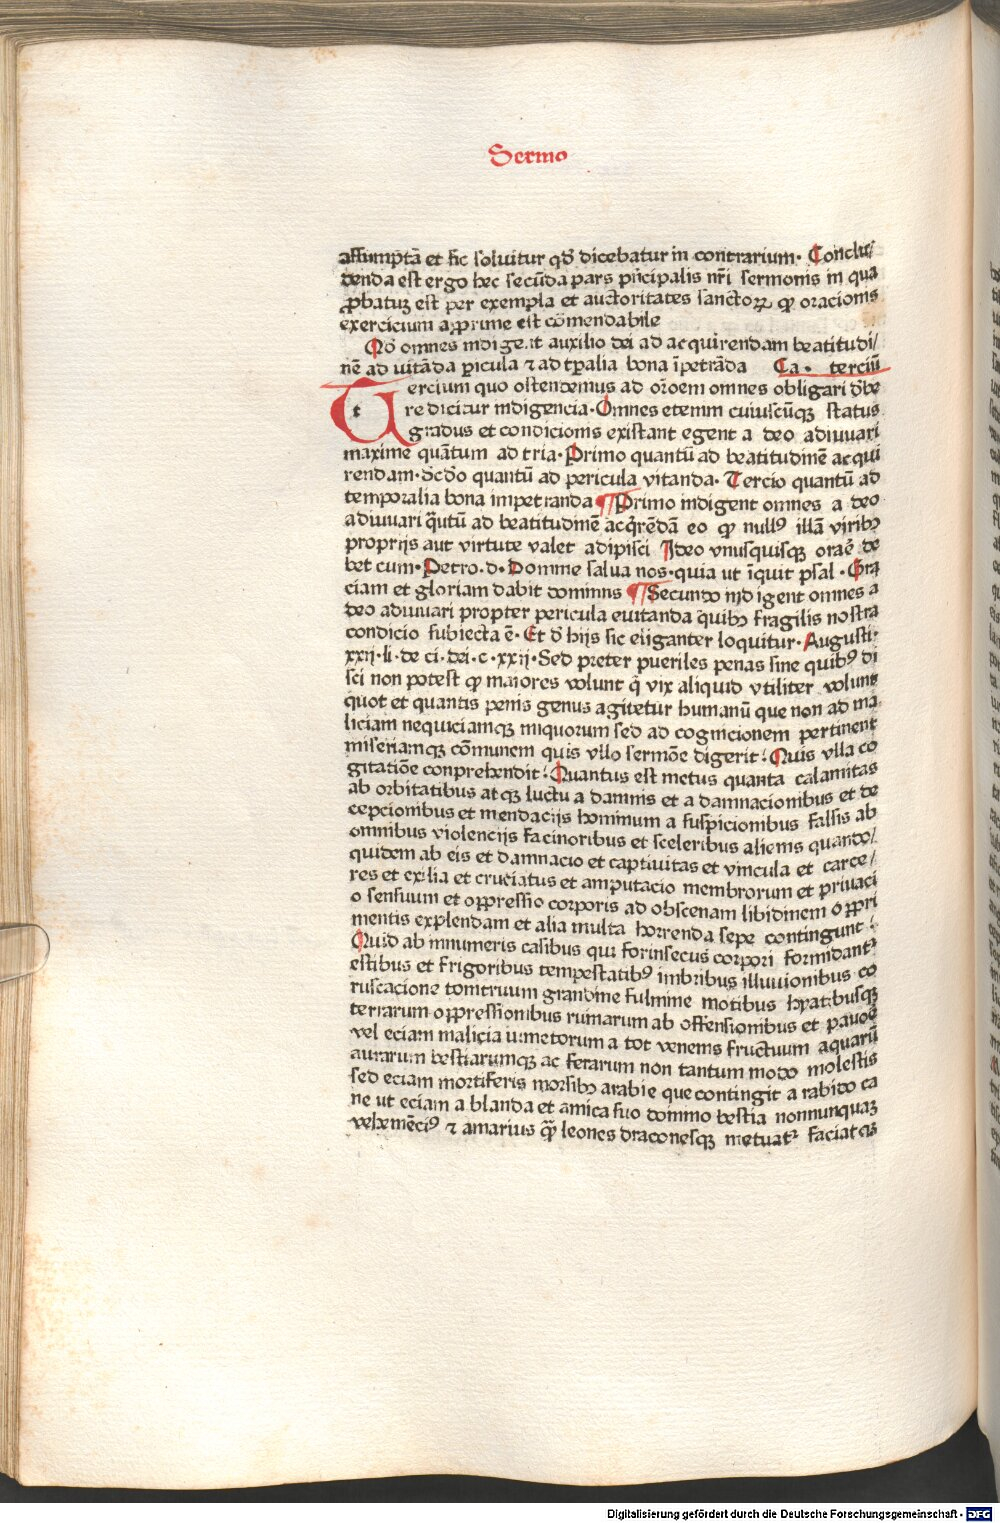 Sermo
assumptã et sic soluitur qđ dicebatur in contrarium· Conclu/
denda est ergo hec secũda pars pñcipalis nr̃i sermonis in qua
ꝓbatuꝫ est per exempla et auctoritates sanctoꝝ ꝙ oracionis
exercicium apprime est cõmendabile
Qđ omnes indigeãt auxilio dei ad acquirendam beatitudi/
nẽ ad vitãda pericula ⁊ ad tp̃ralia bona ĩpetrãda Ca· terciũ
Tercium quo ostendemus ad orõem omnes obligari đbe
re dicitur indigencia· Omnes etenim cuiuscũqꝫ status
gradus et condicionis existant egent a deo adiuuari
maxime quãtum ad tria· Primo quantũ ad beatitudinẽ acqui
rendam· Scđo quantũ ad pericula vitanda· Tercio quantũ ad
temporalia bona impetranda ¶ Primo indigent omnes a deo
adiuuari q̃utũ ad beatitudinẽ acq̃rẽdã eo ꝙ nullꝰ illã viribꝫ
proprijs aut virtute valet adipisci Ideo vnusquisqꝫ orar̃e de
bet cum· Petro· d· Domine salua nos· quia ut ĩquit psal· Gra
ciam et gloriam dabit dominus ¶ Secundo indigent omnes a
deo adiuuari propter pericula euitanda quibꝫ fragilis nostra
condicio subiecta ẽ· Et đ hijs sic eliganter loquitur· Augusti·
xxij· li· de ci· dei· c· xxij· Sed preter pueriles penas sine quibꝰ di
sci non potest ꝙ maiores volunt q̃ vix aliquid vtiliter volunt
quot et quantis penis genus agitetur humanũ que non ad ma
liciam nequiciamqꝫ iniquorum sed ad cognicionem pertinent
miseriamqꝫ cõmunem quis vllo sermõe digerit: Quis vlla co
gitatiõe conprehendit: Quantus est metus quanta calamitas
ab orbitatibus atqꝫ luctu a damnis et a damnacionibus et de
cepcionibus et mendacijs hominum a suspicionibus falsis ab
omnibus violencijs facinoribus et sceleribus alienis quando/
quidem ab eis et damnacio et captiuitas et vincula et carce/
res et exilia et cruciatus et amputacio membrorum et priuaci
o sensuum et oppressio corporis ad obscenam libidinem oppri
mentis explendam et alia multa horrenda sepe contingunt:
Quid ab innumeris casibus qui forinsecus corpori formidant᷑
estibus et frigoribus tempestatibꝰ imbribus illuuionibus co
ruscacione tomtruum grandine fulmine motibus hyatibusqꝫ
terrarum oppressionibus ruinarum ab offensionibus et pauoẽ
vel eciam malicia iumetorum a tot venenis fructuum aquarũ
aurarum bestiarumqꝫ ac ferarum non tantum modo molestis
sed eciam mortiferis morsibꝫ arabie que contingit a rabido ca
ne ut eciam a blanda et amica suo domino bestia nonnunquaꝫ
vehemẽciꝰ ⁊ amarius q̃ leones draconesqꝫ metuat᷑ faciatqꝫ
Digitalisierung gefördert durch die Deutsche Forschungsgemeinschaft - DFG